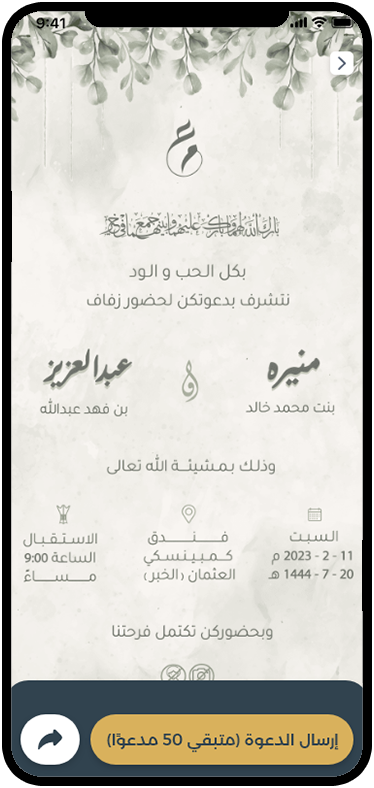 9:41
بارك الله لهما وبارك عليهما وجمع بينهما في خير
بكل الحب و الود
نتشرف بدعوتكن لحضور زفاف
منيره
و
عبدالعزيز
بنت محمد خالد
بن فهد عبدالله
وذلك بمشيئة الله تعالى
السبت
11 - 2 - 2023 م
20 - 7 - 1444 هـ
فندق
كمبينسكي
العثمان (الخبر)
الاستقبال
الساعة 9:00
مساءً
وبحضوركن تكتمل فرحتنا
إرسال الدعوة (متبقي 50 مدعوًا)